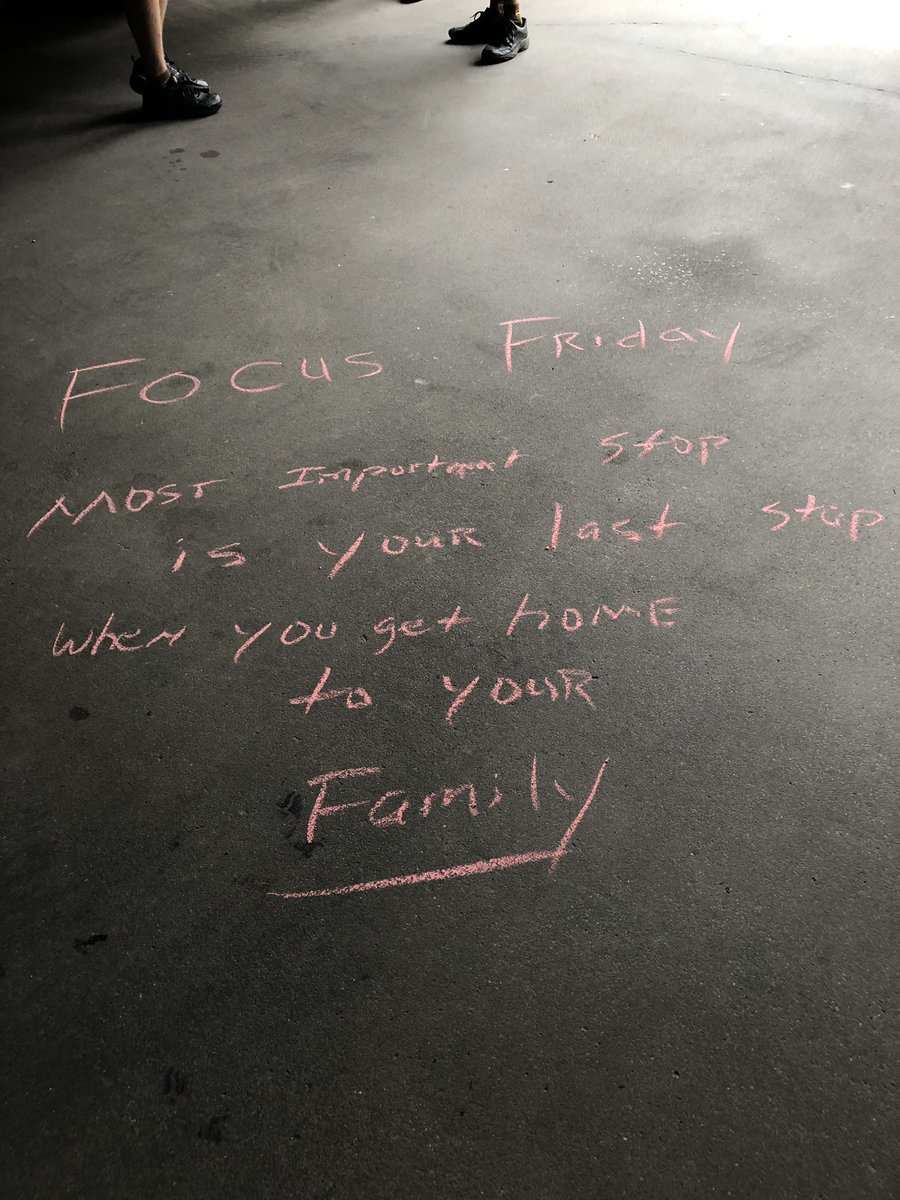 Focus Friday
Most Important stop
is your last stop
when you get home
to your
Family